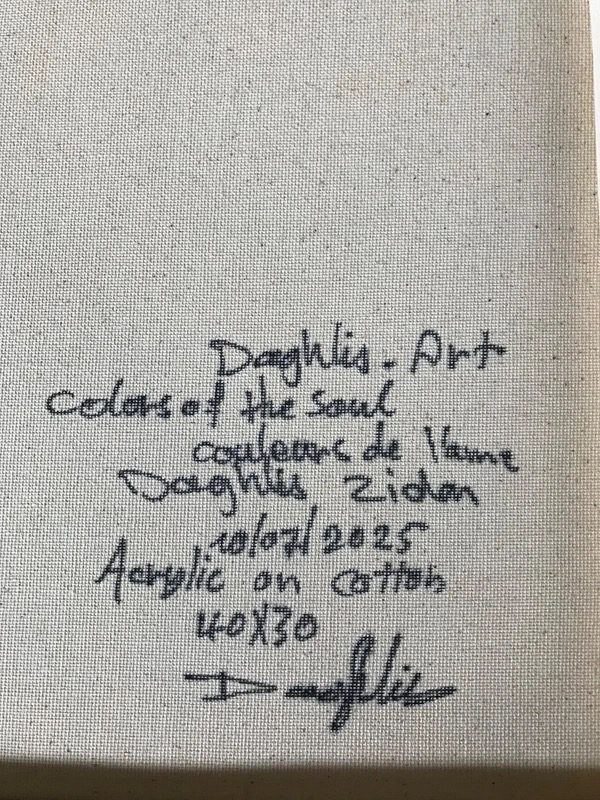 Daghlis. Art
Colors of the Soul
couleurs de l'ame
Daghlis Zidan
10/07/2025
Acrylic on cotton
40X30
Daghlis